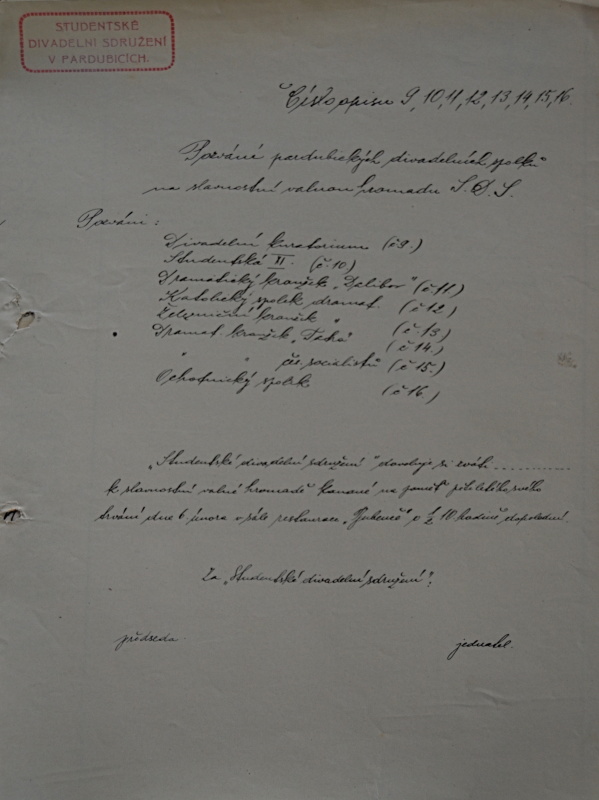 STUDENTSKÉ
DIVADELNÍ SDRUŽENÍ
V PARDUBICÍCH.
Číslo opisu 9, 10, 11, 12, 13, 14, 15, 16.
Pozvání pardubických divadelních spolků
na slavnostní valnou hromadu S. D. S.
Pozváni:
Divadelní kuratorium (č 9.)
Studentská II. (č. 10)
Dramatický kroužek „Dalibor“ (č 11)
Katolický spolek dramat. (č 12)
Železniční kroužek „ (č. 13)
Dramat. kroužek (č 14.)
„ „ čes. socialistů (č 15.)
Ochotnický spolek (č 16.)
„Studentské divadelní sdružení“ dovoluje si zváti ..............
k slavnostní valné hromadě konané na paměť pětiletého svého
trvání dne 6 února v sále restaurace o ½ 10 hodině dopolední.
Za „Studentské divadelní sdružení“:
předseda. jednatel.